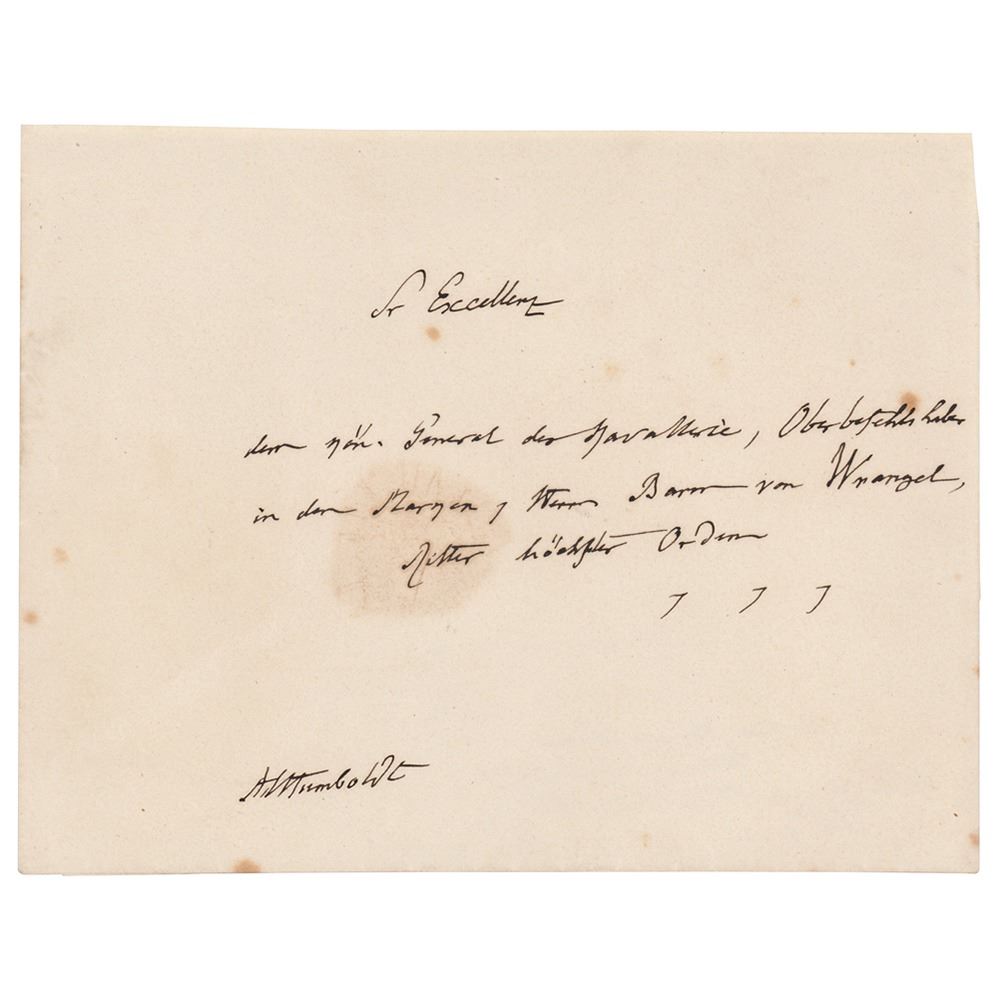 Sr Excellenz
dem Kön. General der Kavallerie, Oberbefehlshaber
in den Marken, Herrn Baron von Wrangel,
Ritter höchster Orden
AvHumboldt